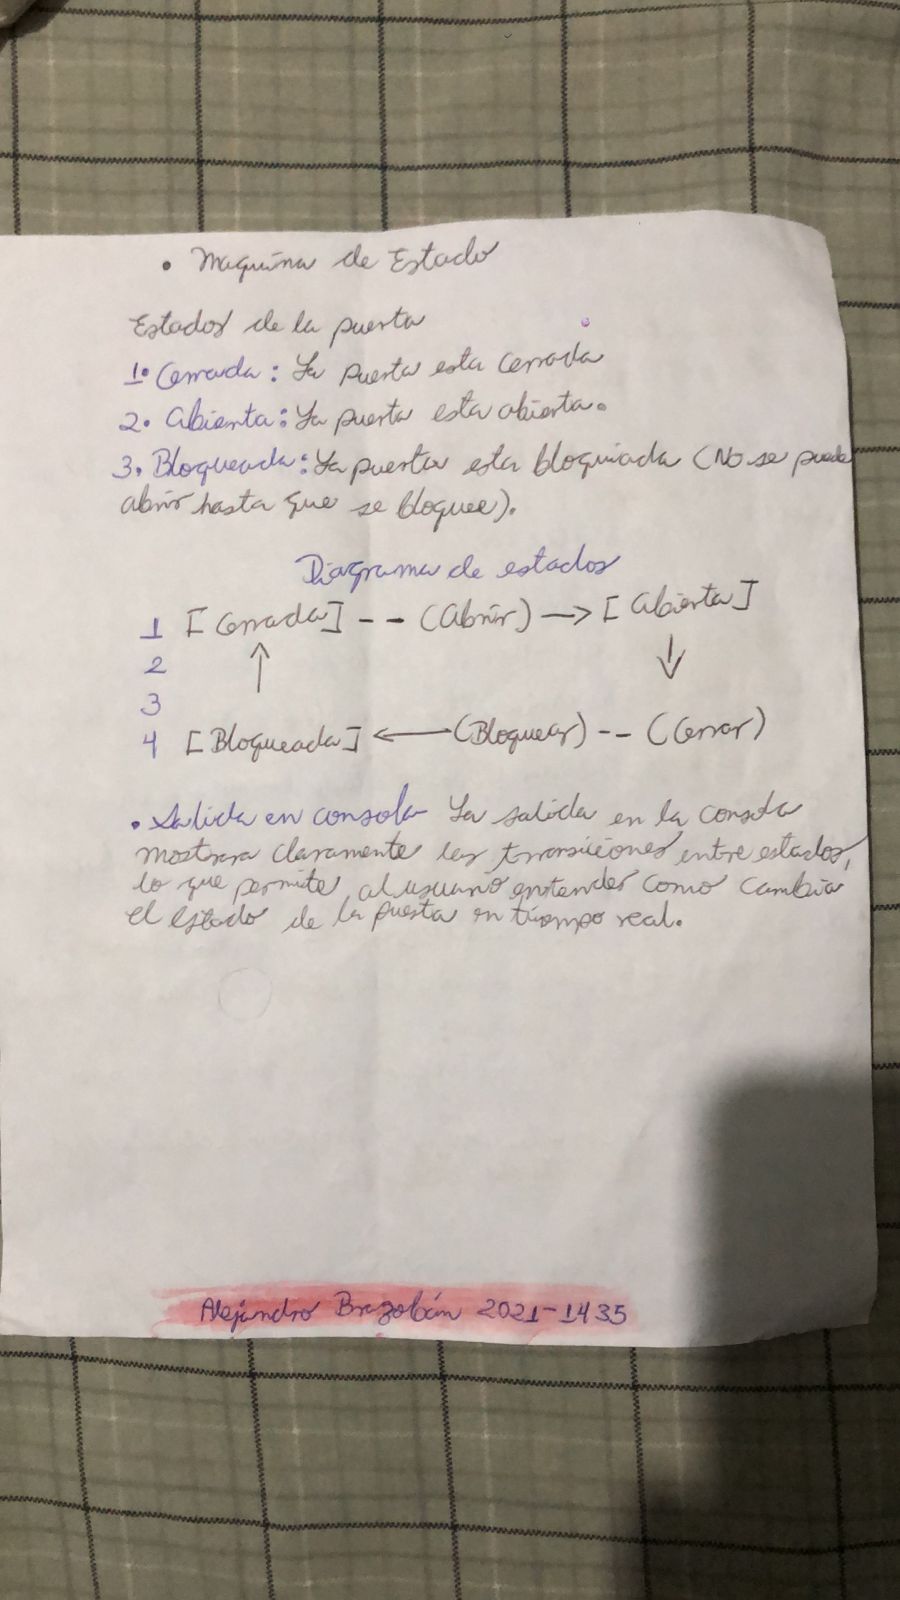 • Maquina de Estado
Estados de la puerta
1. Cerrada: La puerta esta cerrada
2. Abierta: La puerta esta abierta.
3. Bloqueada: La puerta esta bloquiada (No se puede
abrir hasta que se bloquee).
Diagrama de estados
1 [Cerrada] -- (Abrir) → [Abierta]
2 ↑ ↓
3
4 [Bloqueada] ← (Bloquear) -- (Cerrar)
• Salida en consola La salida en la consola
mostrara claramente las transiciones entre estados,
lo que permite al usuario entender como cambia
el estado de la puerta en tiempo real.
Alejandro Brazobán 2021-1435